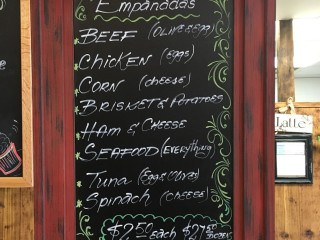 Empanadas
BEEF (OLIVE & EGG)
CHICKEN (EGGS)
CORN (CHEESE)
BRISKET & POTATOES
HAM & CHEESE
SEAFOOD (EVERYTHING)
TUNA (EGGS, OLIVES)
SPINACH (CHEESE)
$2.50 EACH $27.50 DOZEN
Latte